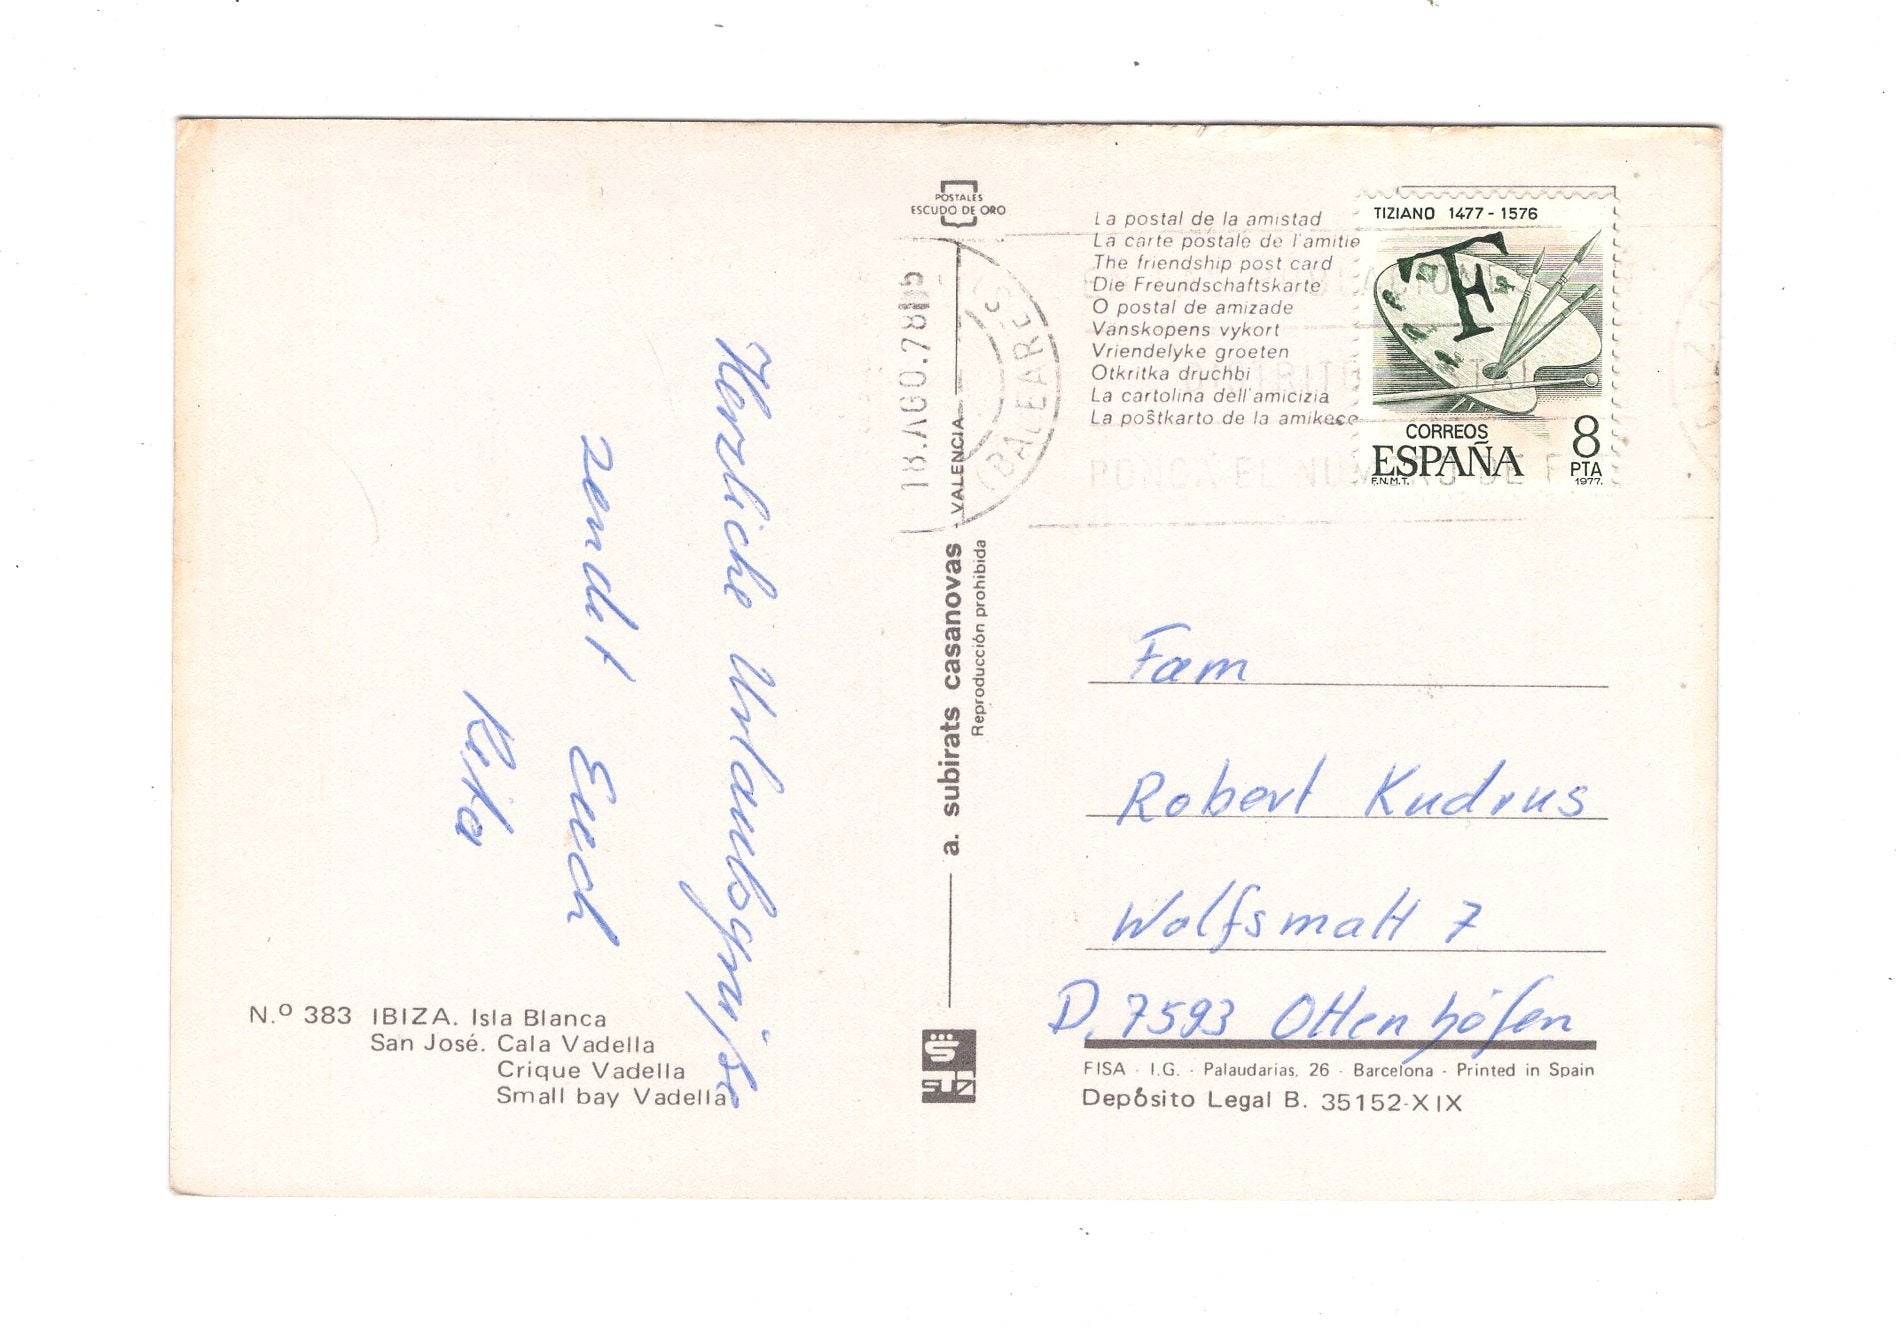 Herzliche Urlaubsgrüße
sendet Euch
Rita
N.º 383 IBIZA. Isla Blanca
San José. Cala Vadella
Crique Vadella
Small bay Vadella
POSTALES
ESCUDO DE ORO
a. subirats casanovas VALENCIA
Reproducción prohibida
18.AGO0.78
(BALEARES)
La postal de la amistad
La carte postale de l'amitie
The friendship post card
Die Freundschaftskarte
O postal de amizade
Vanskopens vykort
Vriendelyke groeten
Otkritka druchbi
La cartolina dell'amicizia
La poŝtkarto de la amikeco
PONGA EL NUMERO DE
TIZIANO 1477-1576
T
CORREOS
ESPAÑA
8
PTA
F.N.M.T.
1977.
Fam
Robert Kudrus
Wolfsmatt 7
D. 7593 Ottenhöfen
FISA - I.G. - Palaudarias, 26 - Barcelona - Printed in Spain
Depósito Legal B. 35152-XIX